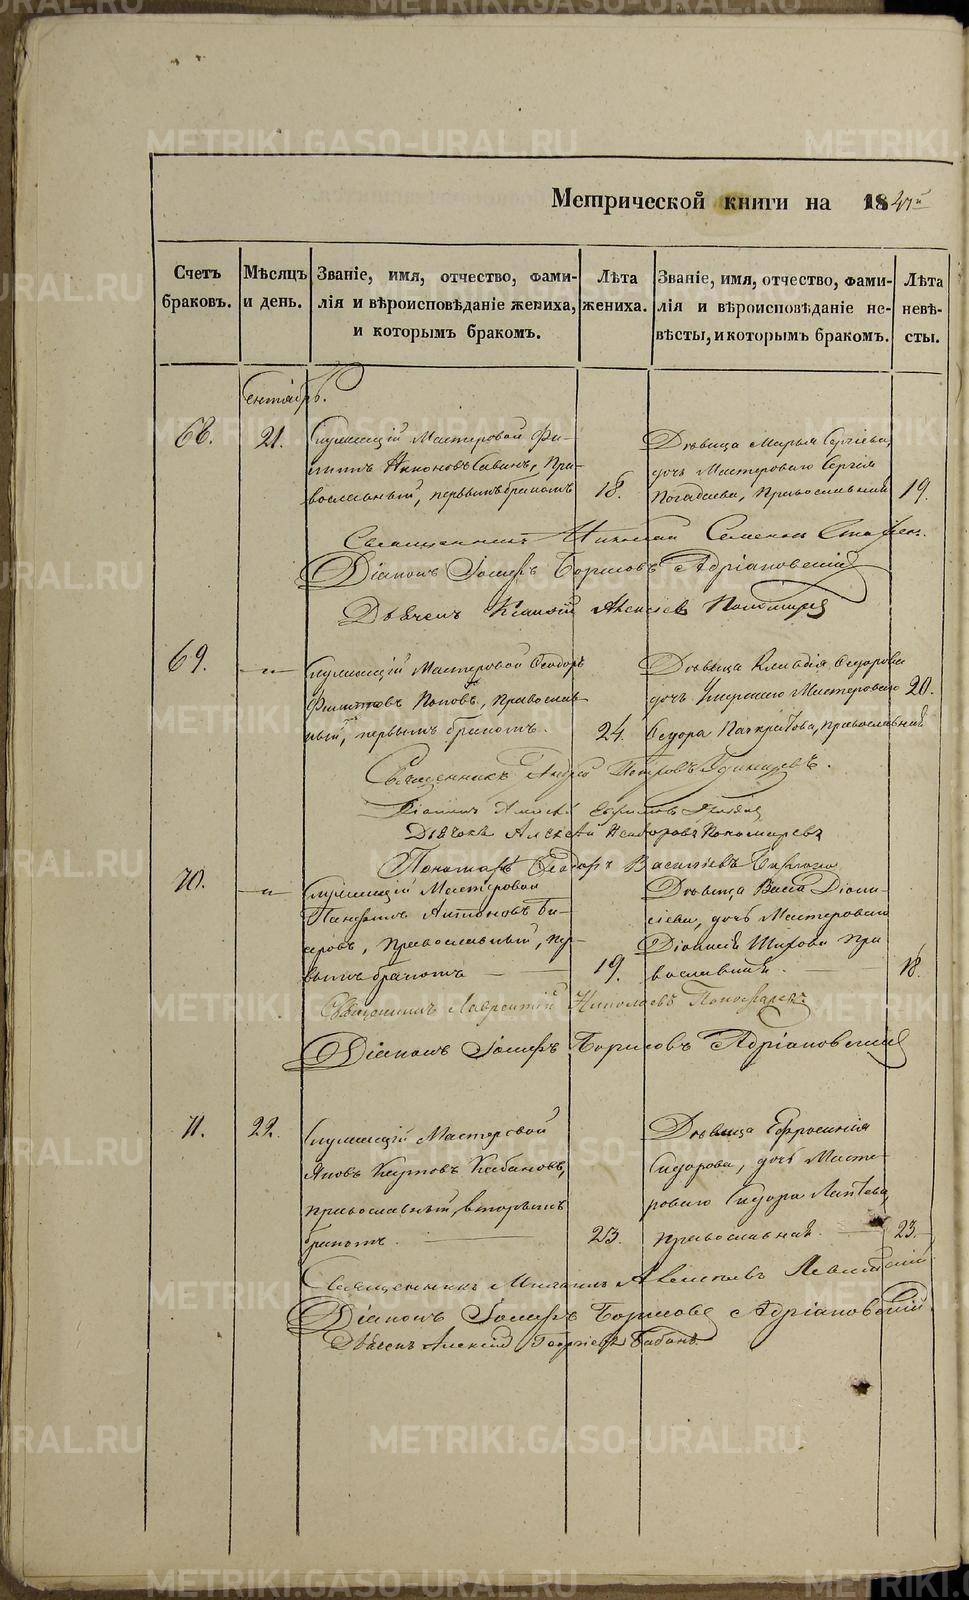 METRIKI.GASO-URAL.RU
Метрической книги на 18
Счетъ браковъ.
Мѣсяцъ и день.
Званіе, имя, отчество, фами-
лія и вѣроисповѣданіе жениха,
и которымъ бракомъ.
Лѣта жениха.
Званіе, имя, отчество, фами-
лія и вѣроисповѣданіе не-
вѣсты, и которымъ бракомъ.
Лѣта невѣ-
сты.
Сентябрь.
68.
21.
Служащій Мастеровой Фи-
липпъ Никоновъ Савинъ, пра-
вославный, первымъ бракомъ
18.
Дѣвица Марья Сергіева,
дочь Мастероваго Сергія
Погадаева, православная
19.
Священникъ Николай Семеновъ
Діаконъ Іосифъ Борисовъ Адріановскій
Дьячекъ Алексіевъ
69.
—"—
Служащій Мастеровой Ѳеодоръ
Филипповъ Поповъ, православ-
ный, первымъ бракомъ.
24.
Дѣвица Клавдія Ѳедорова
дочь Умершаго Мастероваго
Ѳедора Панкратова, православная
20.
Священникъ Андрей Петровъ
Діаконъ
Дьячекъ Алексѣй Ѳеодоровъ Пономаревъ
Пономарь Ѳеодоръ Василіевъ
70.
—"—
Служащій Мастеровой
Панфилъ Антоновъ Би-
серовъ, православный, пер-
вымъ бракомъ
19.
Дѣвица Васса Діони-
сіева, дочь Мастероваго
Діонисія Шихова пра-
вославная.
18.
Священникъ Лаврентій Николаевъ Пономаревъ
Діаконъ Іосифъ Борисовъ Адріановскій
71.
22.
Служащій Мастеровой
Яковъ Карповъ Кабановъ,
православный, вторымъ
бракомъ.
23.
Дѣвица Ефросинія
Сидорова, дочь Масте-
роваго Сидора Лаптева,
православная.
23.
Священникъ Михаилъ Алексіевъ Левитскій
Діаконъ Іосифъ Борисовъ Адріановскій
Дьячекъ Алексій Георгіевъ Бабинъ.